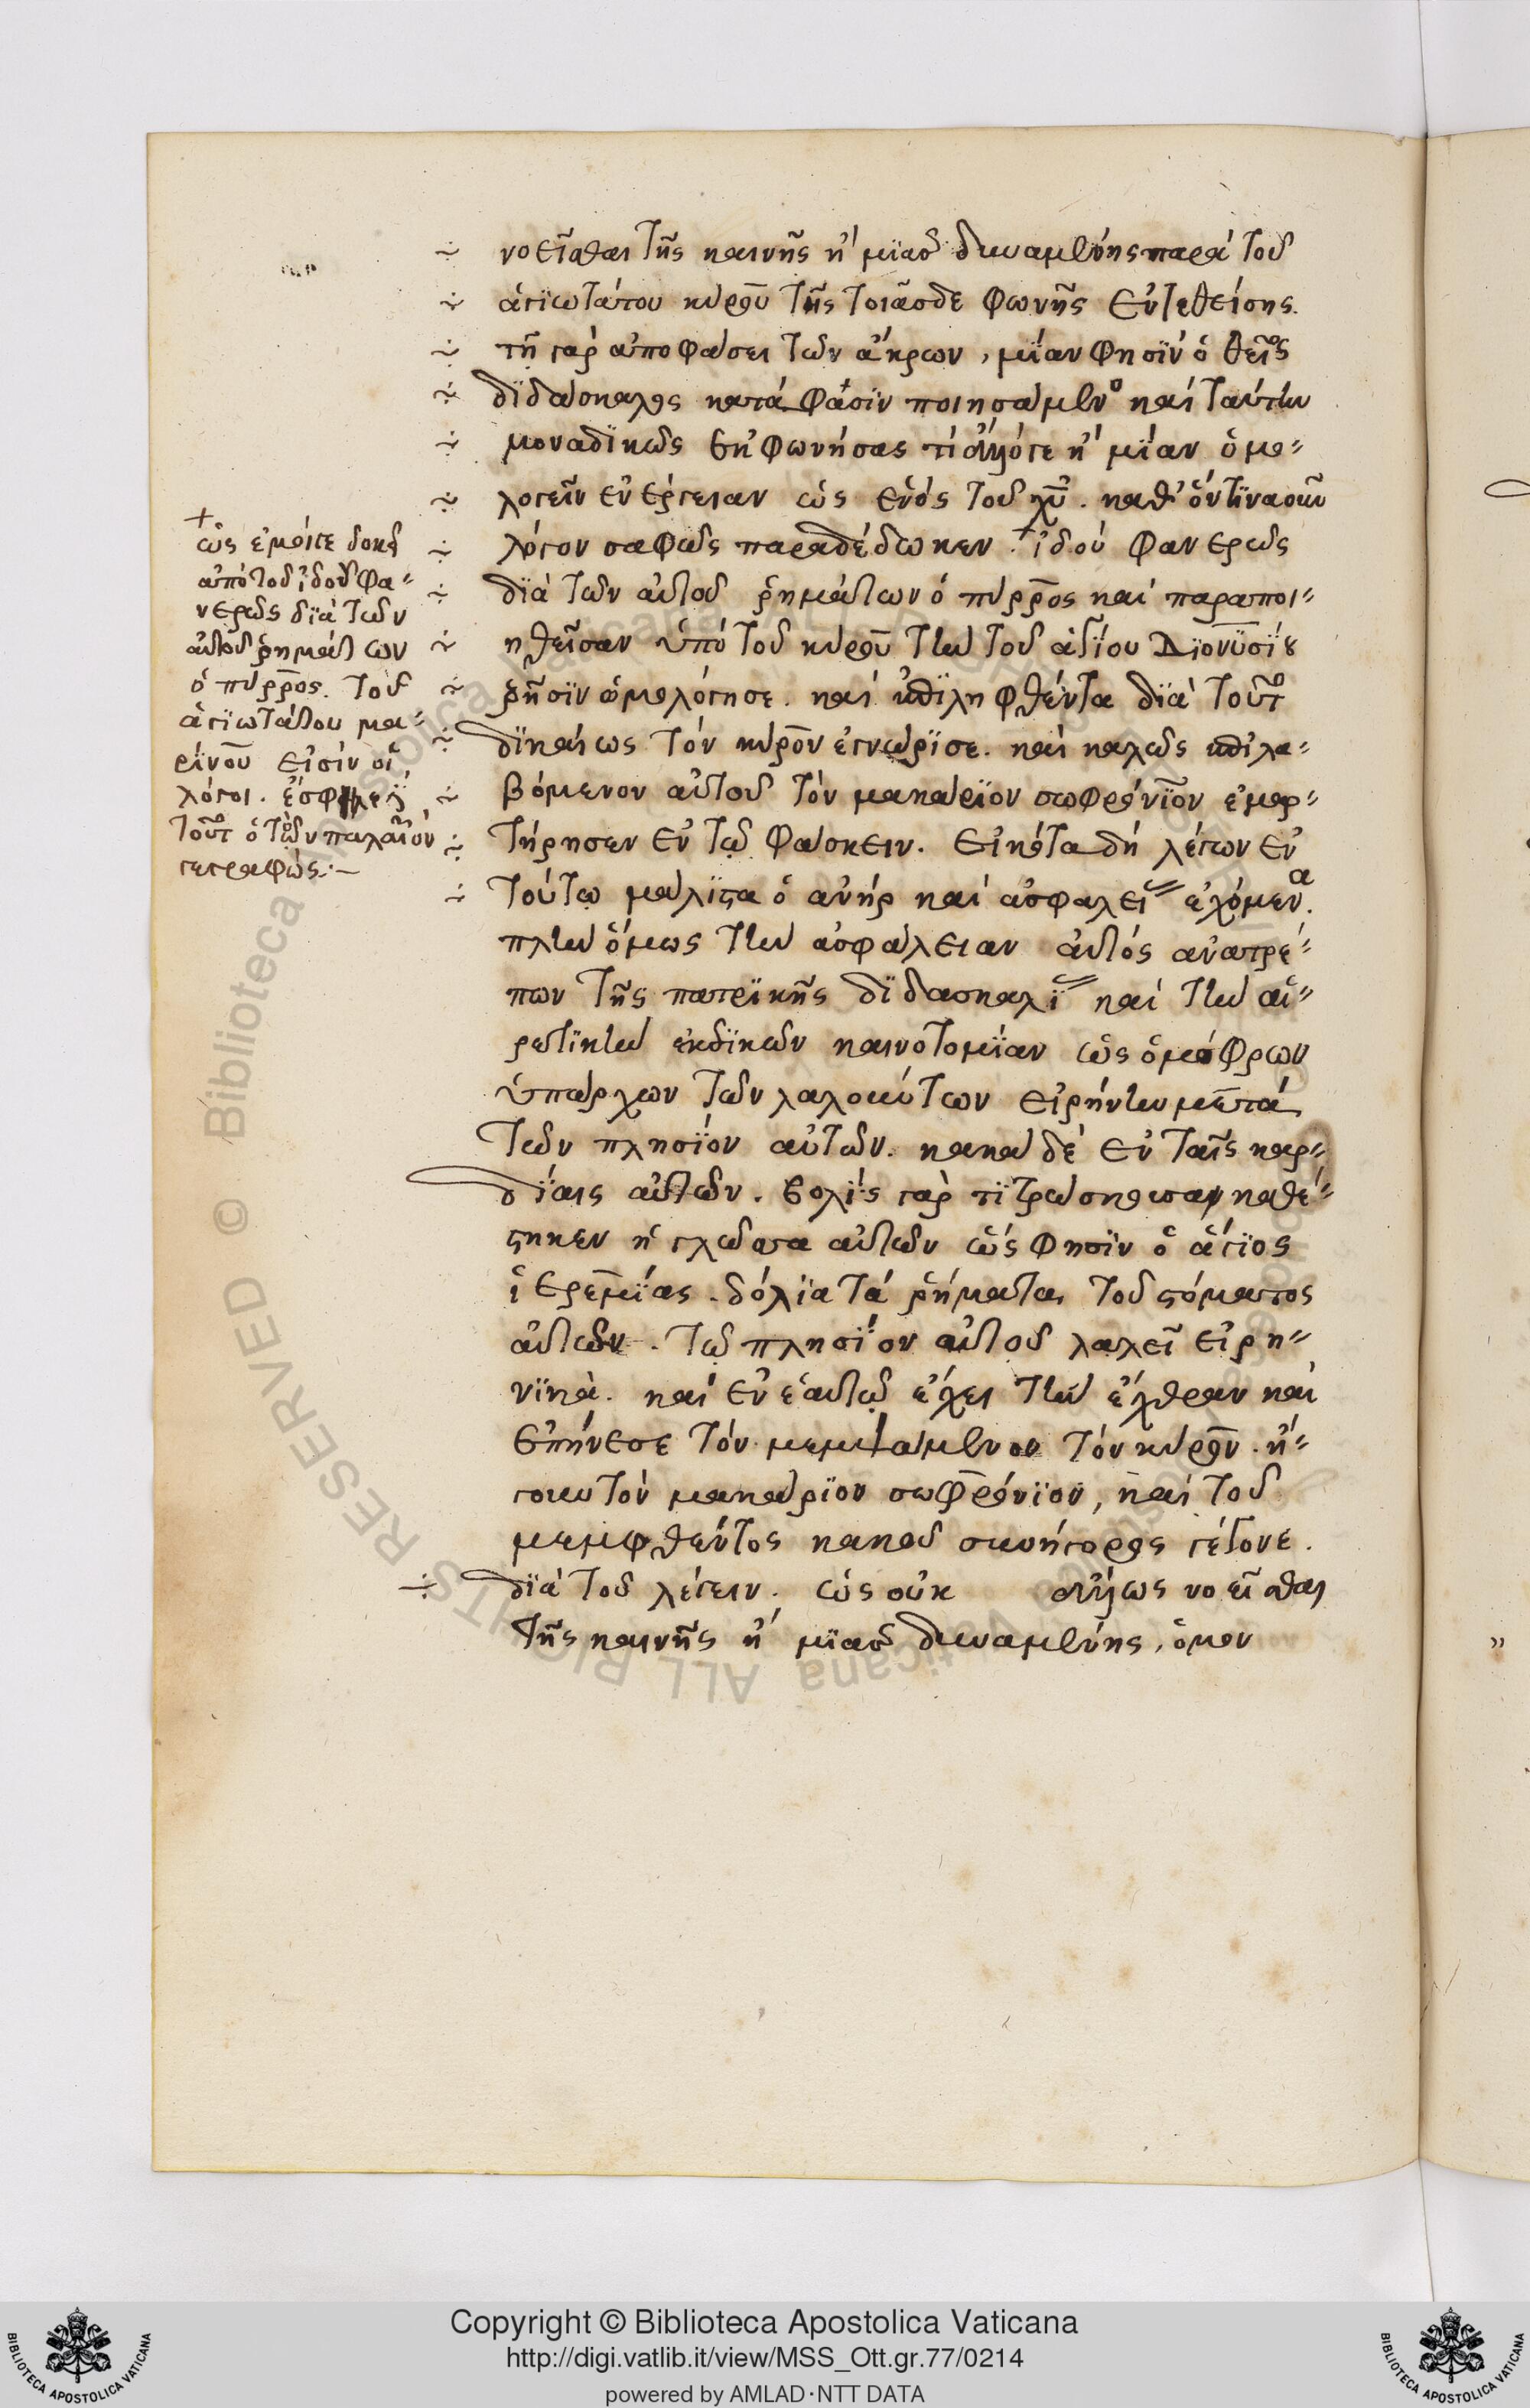 νοεῖσθαι τῆς καινῆς ἢ μϊᾶς δυναμένης παρὰ τοῦ
ἁγϊωτάτου κύρου τῆς τοιᾶσδε φωνῆς ἐντεθείσης.
τῇ γὰρ ἀποφάσει τῶν ἄκρων, μΐαν φησὶν ὁ θεῖος
δϊδάσκαλος κατάφασϊν ποιησάμενος καὶ ταύτην
μοναδϊκῶς ἐκφωνήσας τὶ ἄλλό γε ἢ μΐαν ὁμο-
λογεῖν ἐνέργειαν ὡς ἑνὸς τοῦ χῦ. καθ' ὅντϊναοῦν
λόγον σαφῶς παραδέδωκεν. + ἰδοὺ φανερῶς
δϊὰ τῶν αὐτοῦ ῥημάτων ὁ πύρρος καὶ παραποι-
ηθεῖσαν ὑπὸ τοῦ κύρου τὴν τοῦ ἁγΐου Δϊονϋσΐου
ῥῆσϊν ὡμολόγησε. καὶ ἐπϊληφθέντα δϊὰ τοῦτο
δϊκαίως τὸν κύρον ἐγνώρϊσε. καὶ καλῶς ἐπϊλα-
βόμενον αὐτοῦ τὸν μακάρϊον σωφρόνϊον ἐμαρ-
τήρησεν ἐν τῷ φάσκειν. εἰκότα δὴ λέγων ἐν
τούτω μάλϊστα ὁ ἀνὴρ καὶ ἀσφαλείας ἐχόμενα.
πλὴν ὅμως τὴν ἀσφάλειαν αὐτὸς ἀνατρέ-
πων τῆς πατρϊκῆς δϊδασκαλΐας καὶ τὴν αἱ-
ρετϊκὴν ἐκδϊκῶν καινοτομΐαν ὡς ὁμόφρων
ὑπάρχων τῶν λαλούντων εἰρήνην μετὰ
τῶν πλησΐον αὐτῶν. κακὰ δὲ ἐν ταῖς καρ-
δΐαις αὐτῶν. βολὶς γὰρ τϊτρώσκουσα καθέ-
στηκεν ἡ γλῶσσα αὐτῶν ὥς φησϊν ὁ ἅγϊος
ἱερεμΐας. δόλϊα τὰ ῥήματα τοῦ στόματος
αὐτῶν. τῷ πλησΐον αὐτοῦ λαλεῖ εἰρη-
νϊκὰ. καὶ ἐν ἑαυτῷ ἔχει τὴν ἔχθραν καὶ
ἐπῄνεσε τὸν μεμψάμενον τὸν κύρον. ἤ-
γουν τὸν μακάρϊον σωφρόνϊον, καὶ τοῦ
μεμφθέντος κακοῦ συνήγορος γέγονε.
δϊὰ τοῦ λέγειν. ὡς οὐκ ἄλλως νοεῖσθαι
τῆς καινῆς ἢ μϊᾶς δυναμένης, ὅμου
+
ὡς ἐμοίγε δοκεῖ
ἀπὸ τοῦ ἰδοὺ φα-
νερῶς δϊὰ τῶν
αὐτοῦ ῥημάτων
ὁ πύρρος. τοῦ
ἁγϊωτάτου μα-
ρίνου εἰσὶν οἱ
λόγοι. ἐσφάλη
τοῦτο ὁ τὸν παλαιὸν
γεγραφώς:-
Copyright © Biblioteca Apostolica Vaticana
http://digi.vatlib.it/view/MSS_Ott.gr.77/0214
powered by AMLAD·NTT DATA